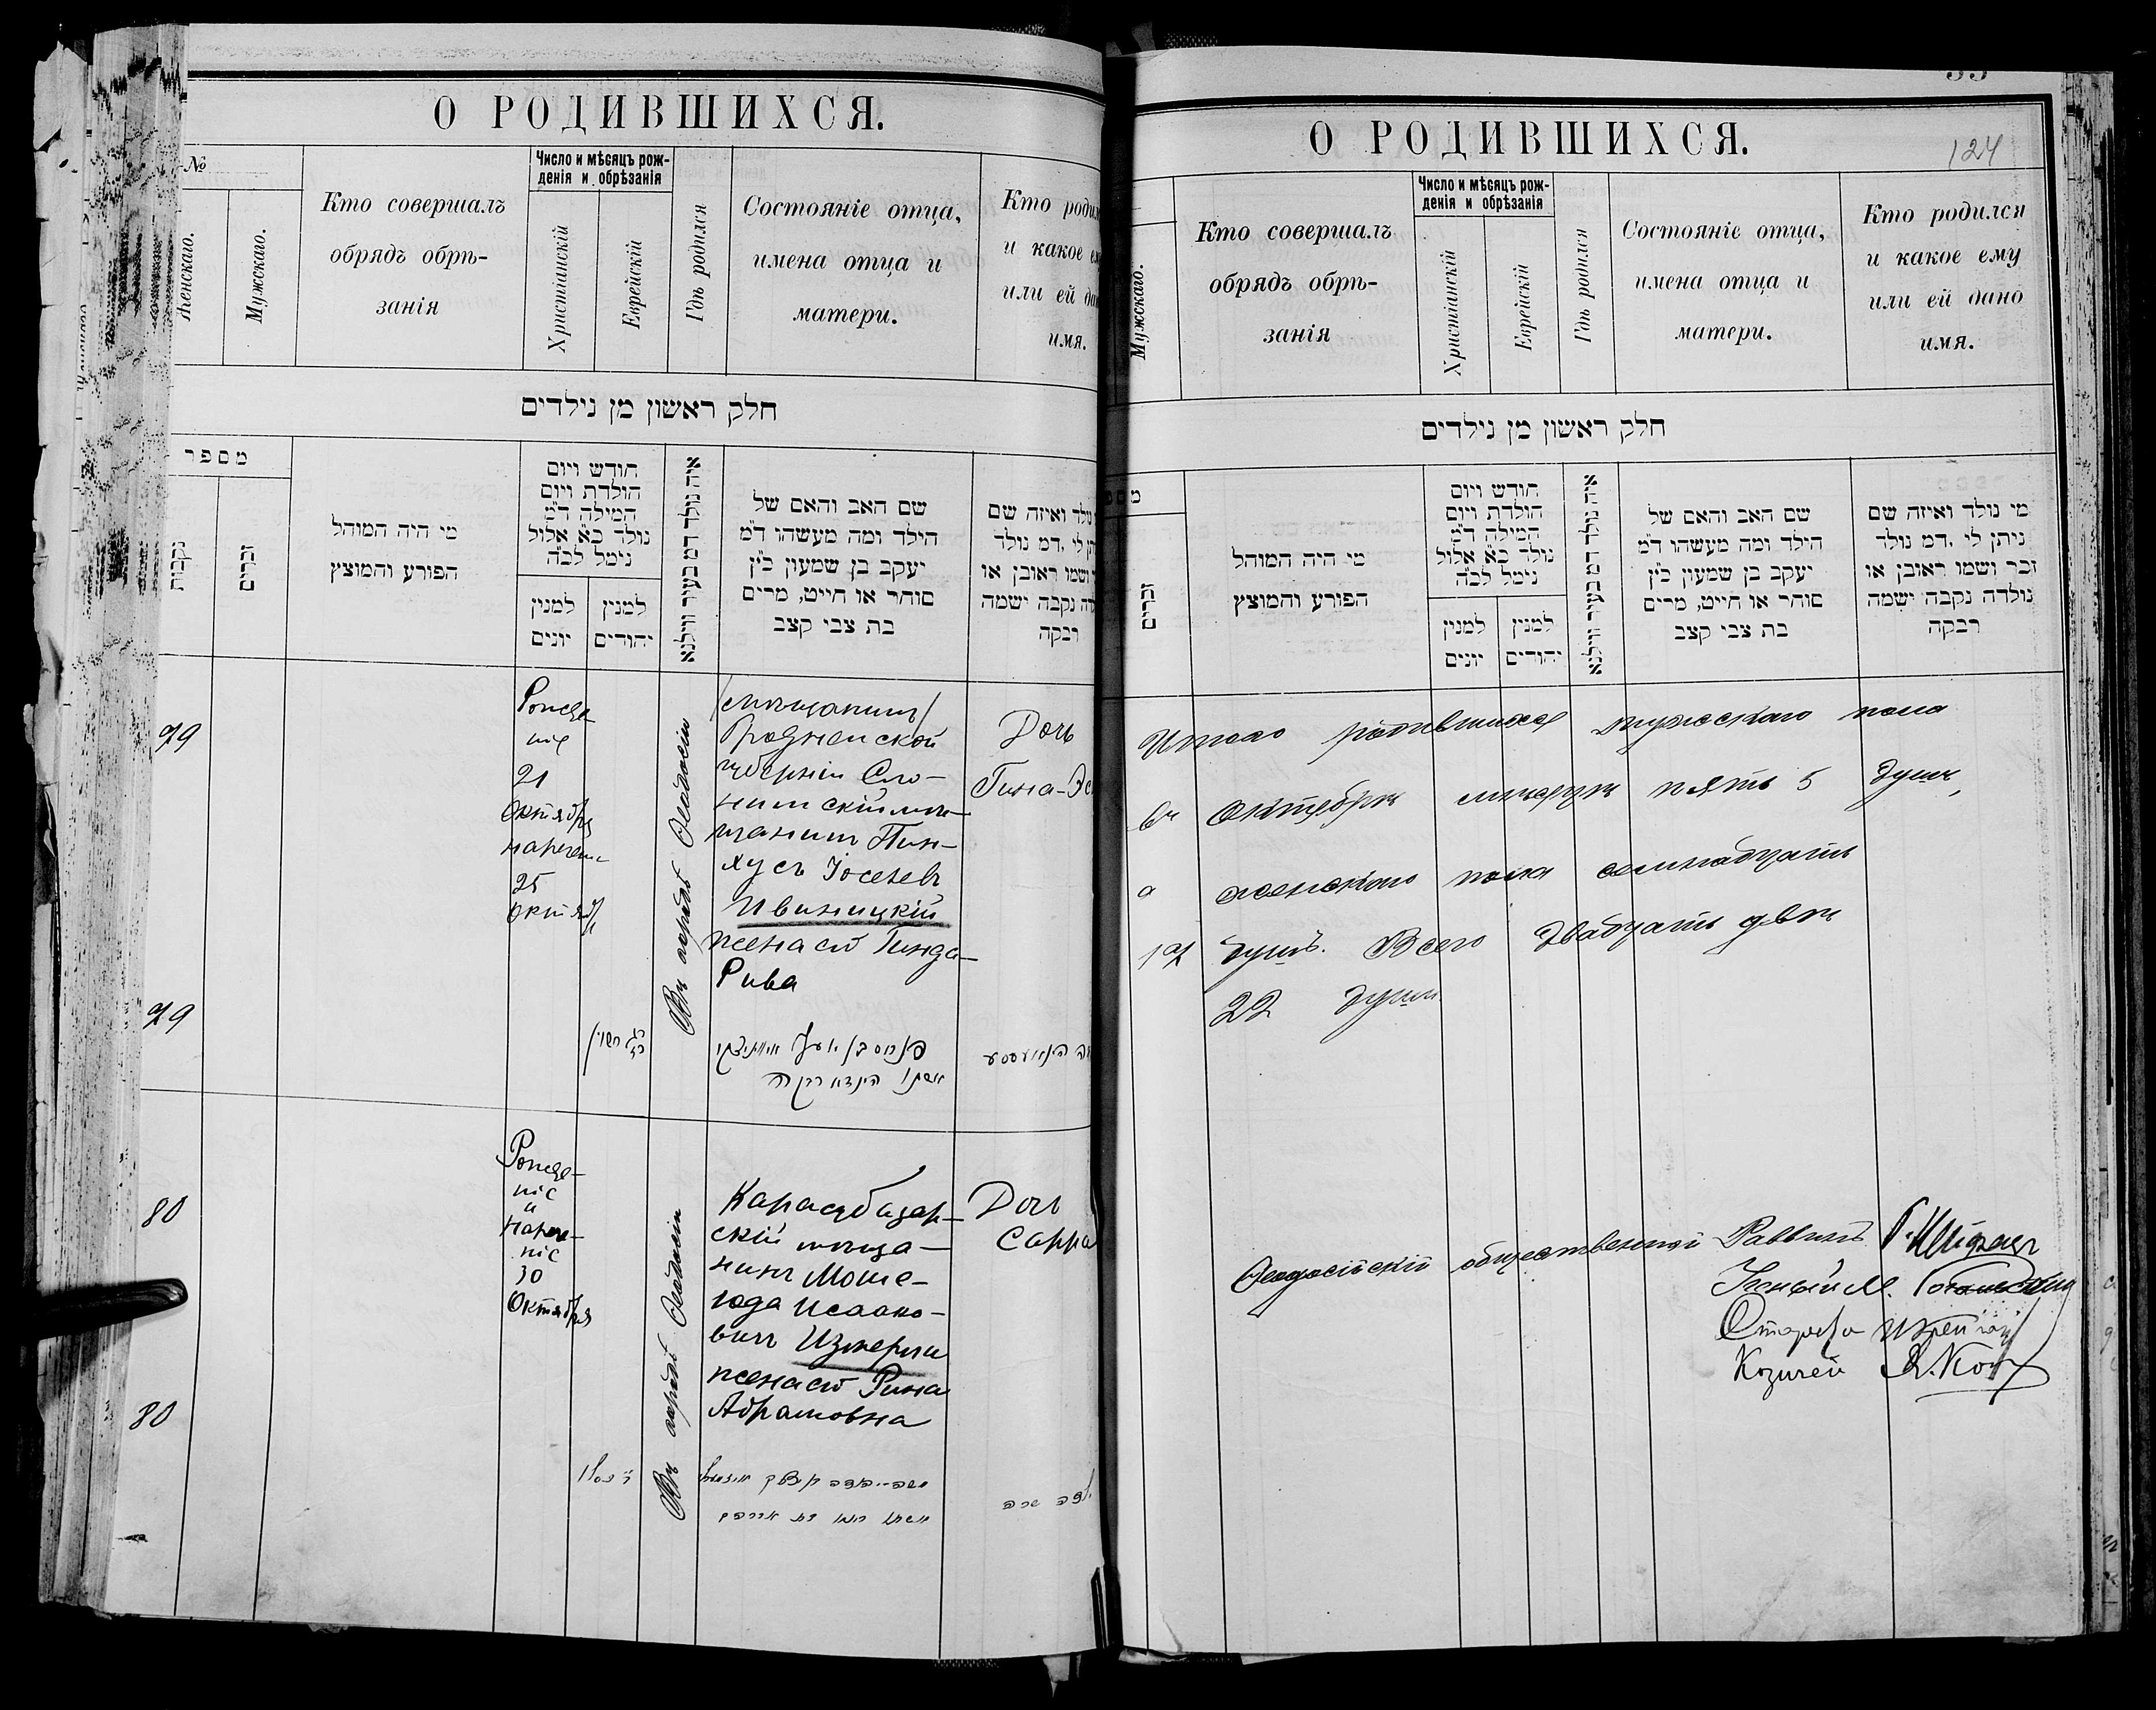 О РОДИВШИХСЯ.
№
Женскаго.
Мужскаго.
Кто совершалъ
обрядъ обрѣ-
занія
Число и мѣсяцъ рож-
денія и обрѣзанія
Христіанскій
Еврейскій
Гдѣ родился
Состояніе отца,
имена отца и
матери.
Кто родил
и какое е
или ей да
имя.
חלק ראשון מן נילדים
מספר
נקבות
זכרים
מי היה המוהל
הפורע והמוצץ
חודש ויום
הולדת ויום
המילה ד״מ
נולד כ״א אלול
נימל לכ״ה
למנין
יונים
למנין
יהודים
איה נולד דמ בעיר ווילנא
שם האב והאם של
הילד ומה מעשהו ד״מ
יעקב בן שמעון כ״ץ
סוחר או חייט, מרים
בת צבי קצב
נולד ואיזה שם
לי .דמ נולד
ושמו ראובן או
נקבה ישמה
רבקה
79
Рожде-
ніе
21
Октября
наречен
25
Октяб
Въ городѣ Ѳеодосіи
/мѣщанинъ/
Гродненской
губерніи Сло-
нимскій мѣ-
щанинъ Пин-
хусъ Іоселевъ
Ивиницкій
жена его Гинда-
Рива
Дочь
Гина-Эс
79
פנחס בן יוסף
אשתו הינדא רבקה
80
Рожде-
ніе
и
нарече-
ніе
30
Октября
Въ городѣ Ѳеодосіи
Карасубазар-
скій мѣща-
нинъ Моше-
Іода Исаако-
вичъ Измерли
жена его Рина
Абрамовна
Дочь
Сарра
80
О РОДИВШИХСЯ.
124
Мужскаго.
Кто совершалъ
обрядъ обрѣ-
занія
Число и мѣсяцъ рож-
денія и обрѣзанія
Христіанскій
Еврейскій
Гдѣ родился
Состояніе отца,
имена отца и
матери.
Кто родился
и какое ему
или ей дано
имя.
חלק ראשון מן נילדים
זכרים
מי היה המוהל
הפורע והמוצץ
חודש ויום
הולדת ויום
המילה ד״מ
נולד כ״א אלול
נימל לכ״ה
למנין
יונים
למנין
יהודים
איה נולד דמ בעיר ווילנא
שם האב והאם של
הילד ומה מעשהו ד״מ
יעקב בן שמעון כ״ץ
סוחר או חייט, מרים
בת צבי קצב
מי נולד ואיזה שם
ניתן לי .דמ נולד
זכר ושמו ראובן או
נולדה נקבה ישמה
רבקה
Итого родившихся мужскаго пола
въ Октябрѣ мѣсяцѣ пять 5 душъ,
а женскаго пола семнадцать
17 душъ. Всего двадцать двѣ
22 души
Ѳеодосійскій общественный Раввинъ
Ученый М.
Староста
Казначей